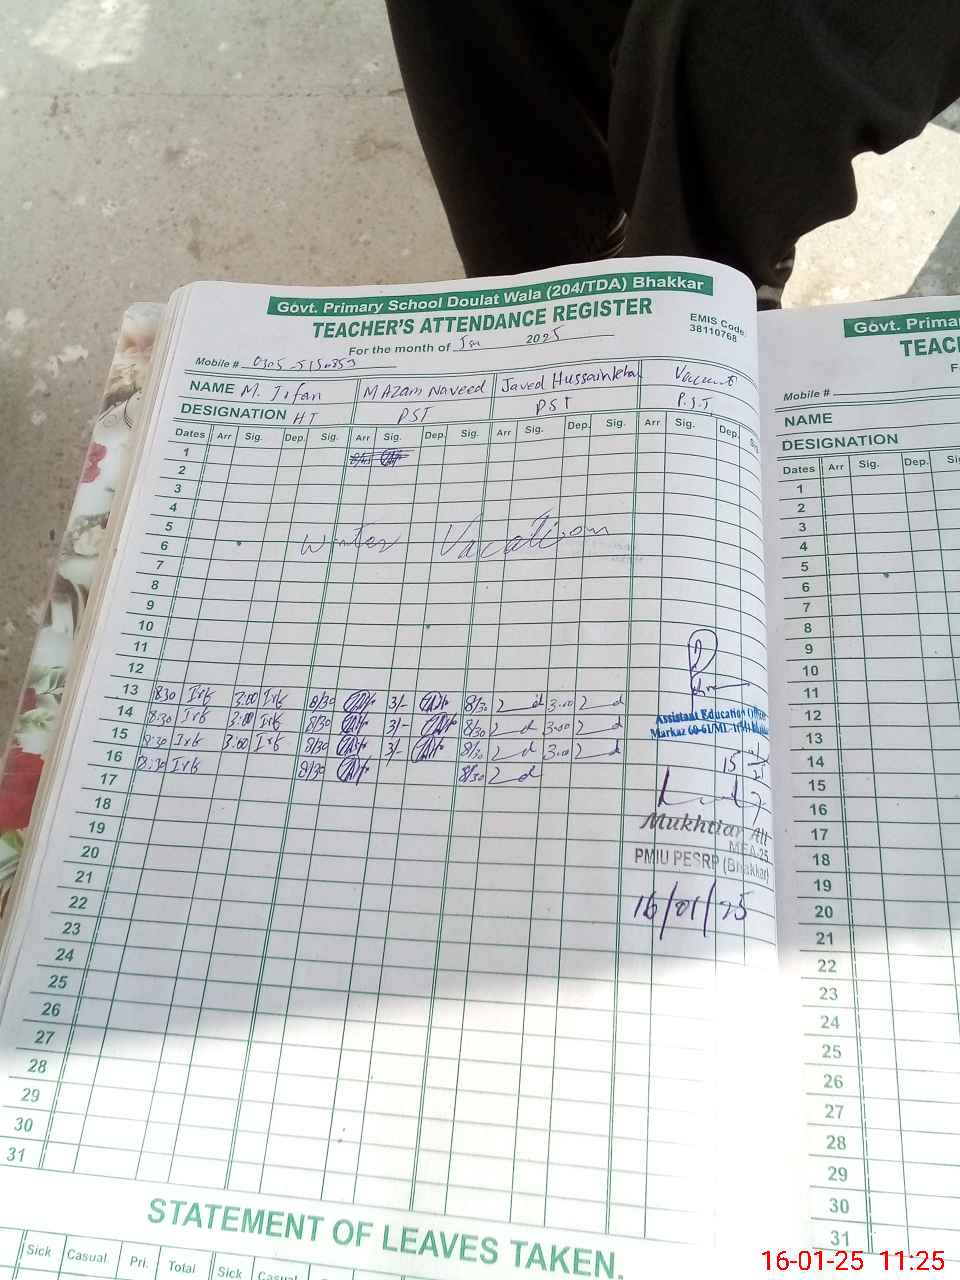 Govt. Primary School Doulat Wala (204/TDA) Bhakkar
TEACHER'S ATTENDANCE REGISTER
EMIS Code.
38110768
For the month of Jan 2025
Mobile #
NAME M. Irfan M Azam Naveed Javed Hussain Vacant
DESIGNATION HT PST PST P.S.T
Dates Arr Sig. Dep. Sig. Arr Sig. Dep. Sig. Arr Sig. Dep. Sig. Arr Sig. Dep. Sig.
1
2
3
4
5
Winter Vacation
6
7
8
9
10
11
12
13 8:30 Irf 3:00 Irf 8/30 3/- 8/30 3:00
14 8:30 Irf 3:00 Irf 8/30 3/- 8/30 3:00
15 8:30 Irf 3:00 Irf 8/30 3/- 8/30 3:00
16 8:30 Irf 8/30 8/30
17
18
19
20
21
22
23
24
25
26
27
28
29
30
31
Assistant Education
Markaz
15
Mukhtiar Ali
MEA-25
PMIU PESRP (Bhakkar)
16/01/25
STATEMENT OF LEAVES TAKEN.
Sick Casual Pri. Total Sick Casual
Govt. Primar
TEAC
Mobile #
NAME
DESIGNATION
Dates Arr Sig. Dep.
1
2
3
4
5
6
7
8
9
10
11
12
13
14
15
16
17
18
19
20
21
22
23
24
25
26
27
28
29
30
31
16-01-25 11:25